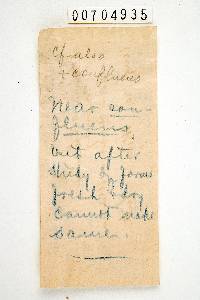 00704935
cf also
+ confluens
Near con-
fluens,
but after
study of forms
fresh I dry
cannot make
same.